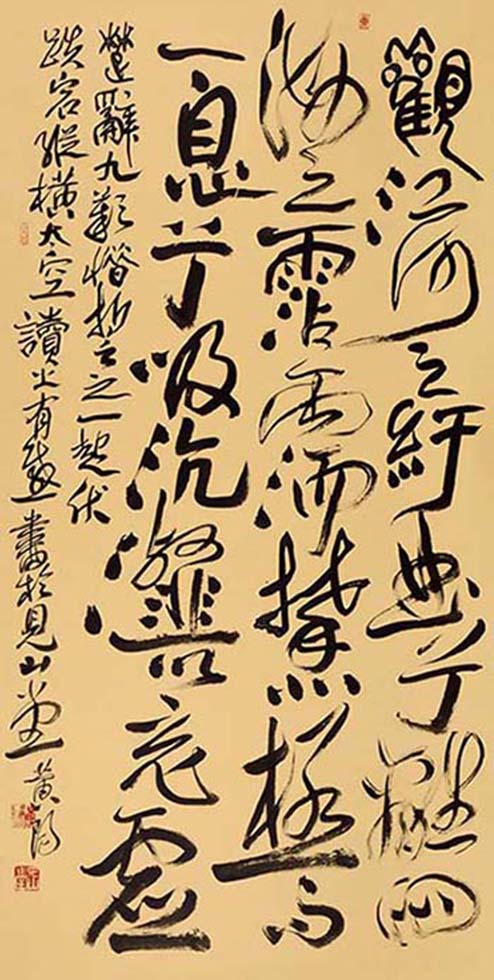 觀江河之紆曲兮離四
海之霑濡攀北極而
一息兮吸沆瀣以充虛
楚辭九歎惜誓之一起伏
跌宕縱橫太空讀之有感書於見山堂黃